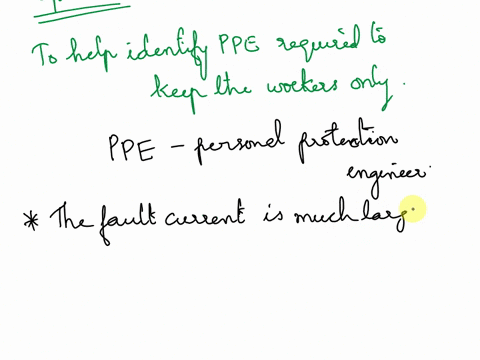 To help identify PPE required to
keep the workers only.
PPE - personal protection
engineer.
* The fault current is much larg